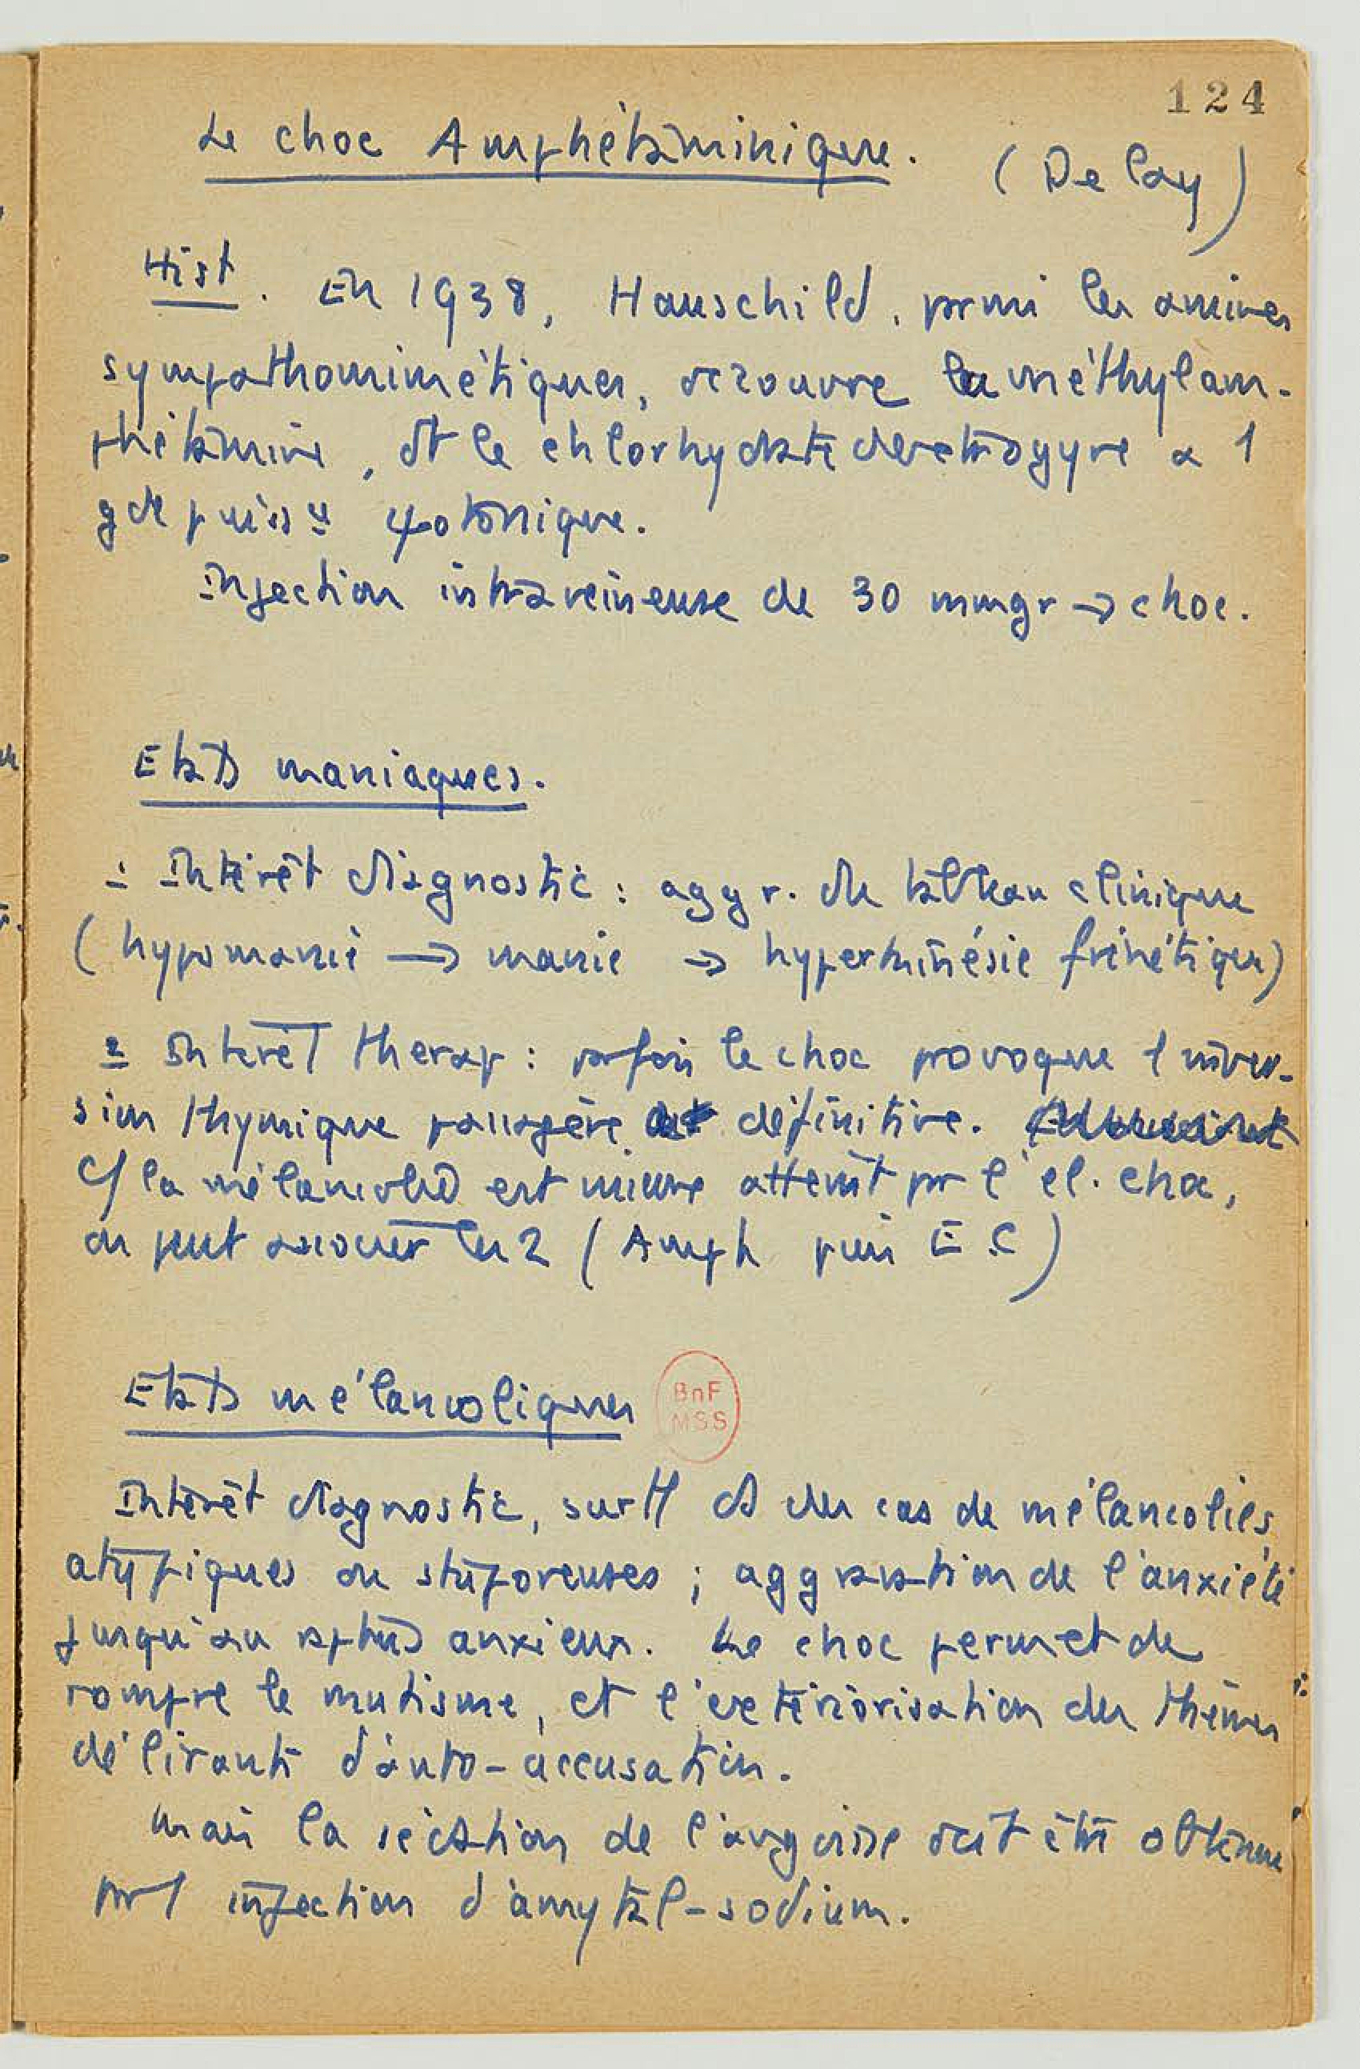 124
Le choc Amphétaminique. (Delay)
Hist. En 1938, Hauschild, parmi les amines
sympathomimétiques, découvre la méthylam-
phétamine, dt le chlorhydrate dextrogyre a 1
gde puiss ψotonique.
Injection intraveineuse de 30 mmgr → choc.
Etats maniaques.
1 Intérêt diagnostic : aggr. du tableau clinique
(hypomanie → manie → hyperkinésie frénétique)
2 Intérêt therap : parfois le choc provoque 1 inver-
sion thymique passagère définitive.
C/ la mélancolie est mieux atteint par l'él. choc,
on peut associer les 2 (Amph puis E.C)
Etats mélancoliques
BnF
MSS
Intérêt diagnostic, surtt ds les cas de mélancolies
atypiques ou stuporeuses ; aggravation de l'anxiété
jusqu'au raptus anxieux. Le choc permet de
rompre le mutisme, et l'extériorisation des thèmes
délirants d'auto-accusation.
Mais la sédation de l'angoisse doit être obtenue
par 1 injection d'amytal-sodium.